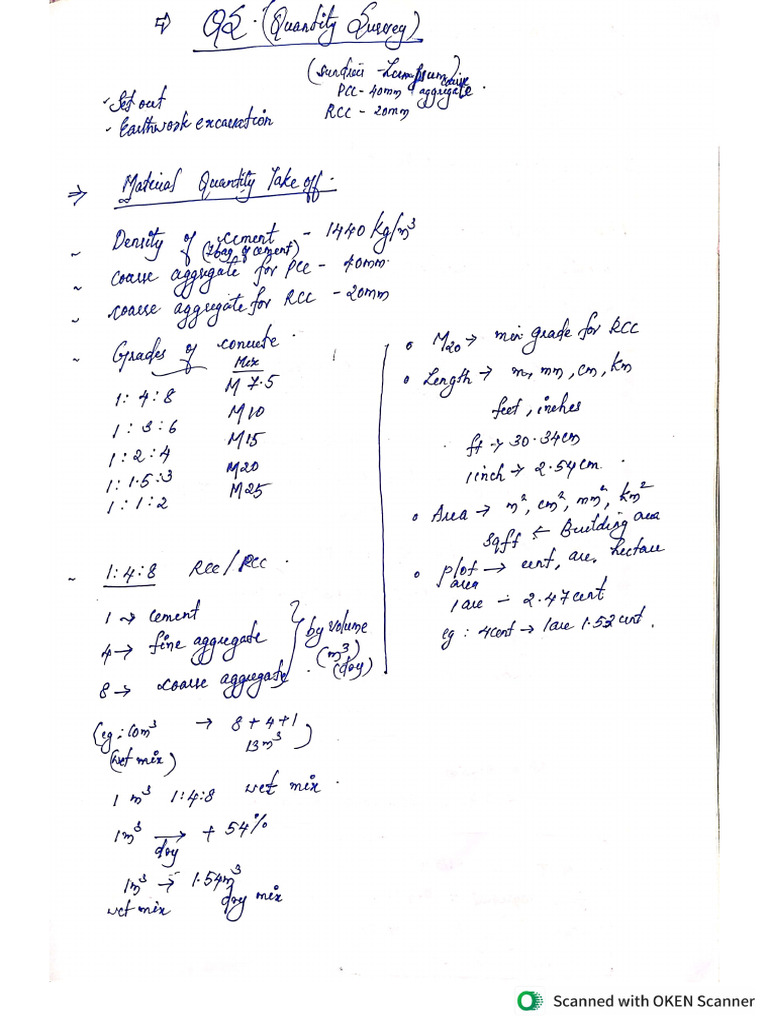 ⇒ QS. (Quantity Survey)
(Sundries - Lumpsum)
PCC - 40mm coarse aggregate.
RCC - 20mm
- Set out
- Earthwork excavation
⇒ Material Quantity Take off.
~ Density of cement - 1440 kg/m³
(1bag of cement)
~ coarse aggregate for PCC - 40mm.
~ coarse aggregate for RCC - 20mm
~ Grades of concrete.
Mix
1:4:8 M 7.5
1:3:6 M10
1:2:4 M15
1:1.5:3 M20
1:1:2 M25
~ 1:4:8 RCC/PCC.
1 → cement
4 → fine aggregate
8 → coarse aggregate
by volume
(m³)
(dry)
(eg: 10m³ → 8+4+1
13m³)
(wet mix)
1 m³ 1:4:8 wet mix.
1m³ → + 54%
dry
1m³ → 1.54m³
wet mix dry mix
• M20 → min grade for RCC
• Length → m, mm, cm, km
feet, inches
ft → 30.34cm
1inch → 2.54cm.
• Area → m², cm², mm², km²
sqft ← Building area
• plot → cent, are, hectare
area
1are - 2.47cent
eg: 4cent → 1are 1.52cent.
Scanned with OKEN Scanner